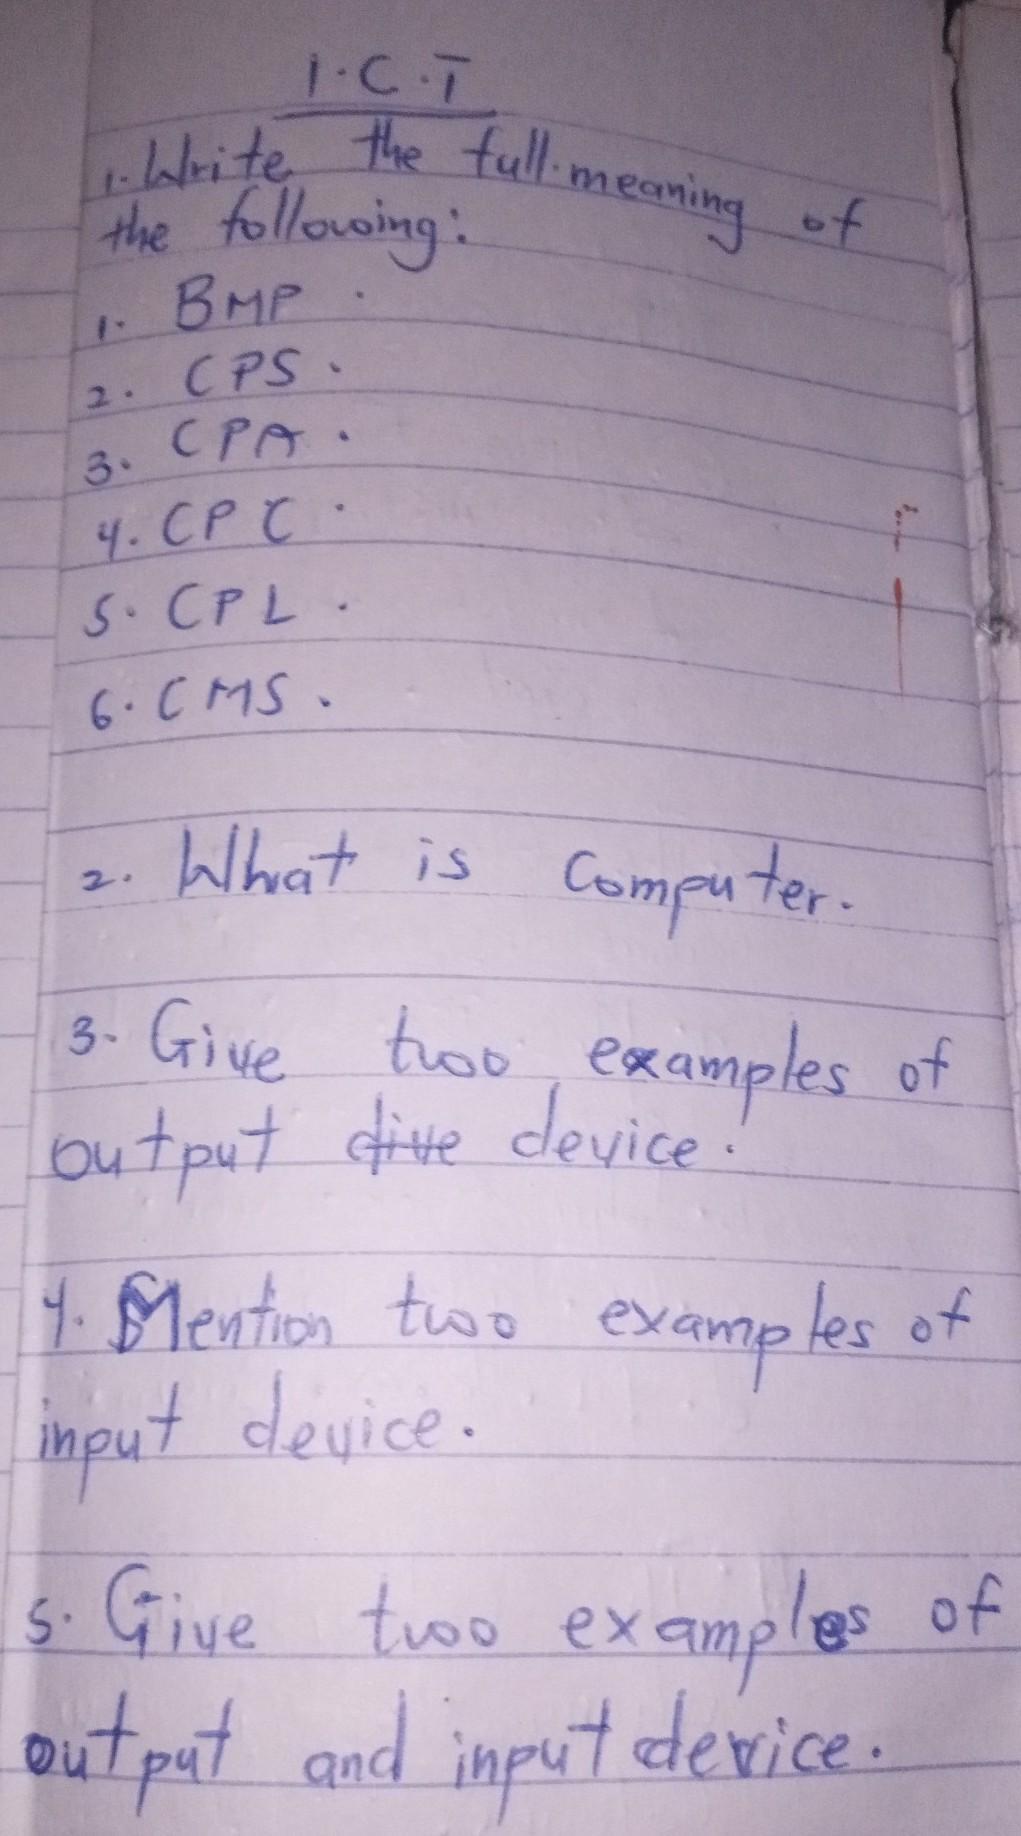 I.C.T
1. Write the full meaning of
the following:
1. BMP.
2. CPS.
3. CPA.
4. CPC.
5. CPL.
6. CMS.
2. What is Computer.
3. Give two examples of
output dive device.
4. Mention two examples of
input device.
5. Give two examples of
output and input device.